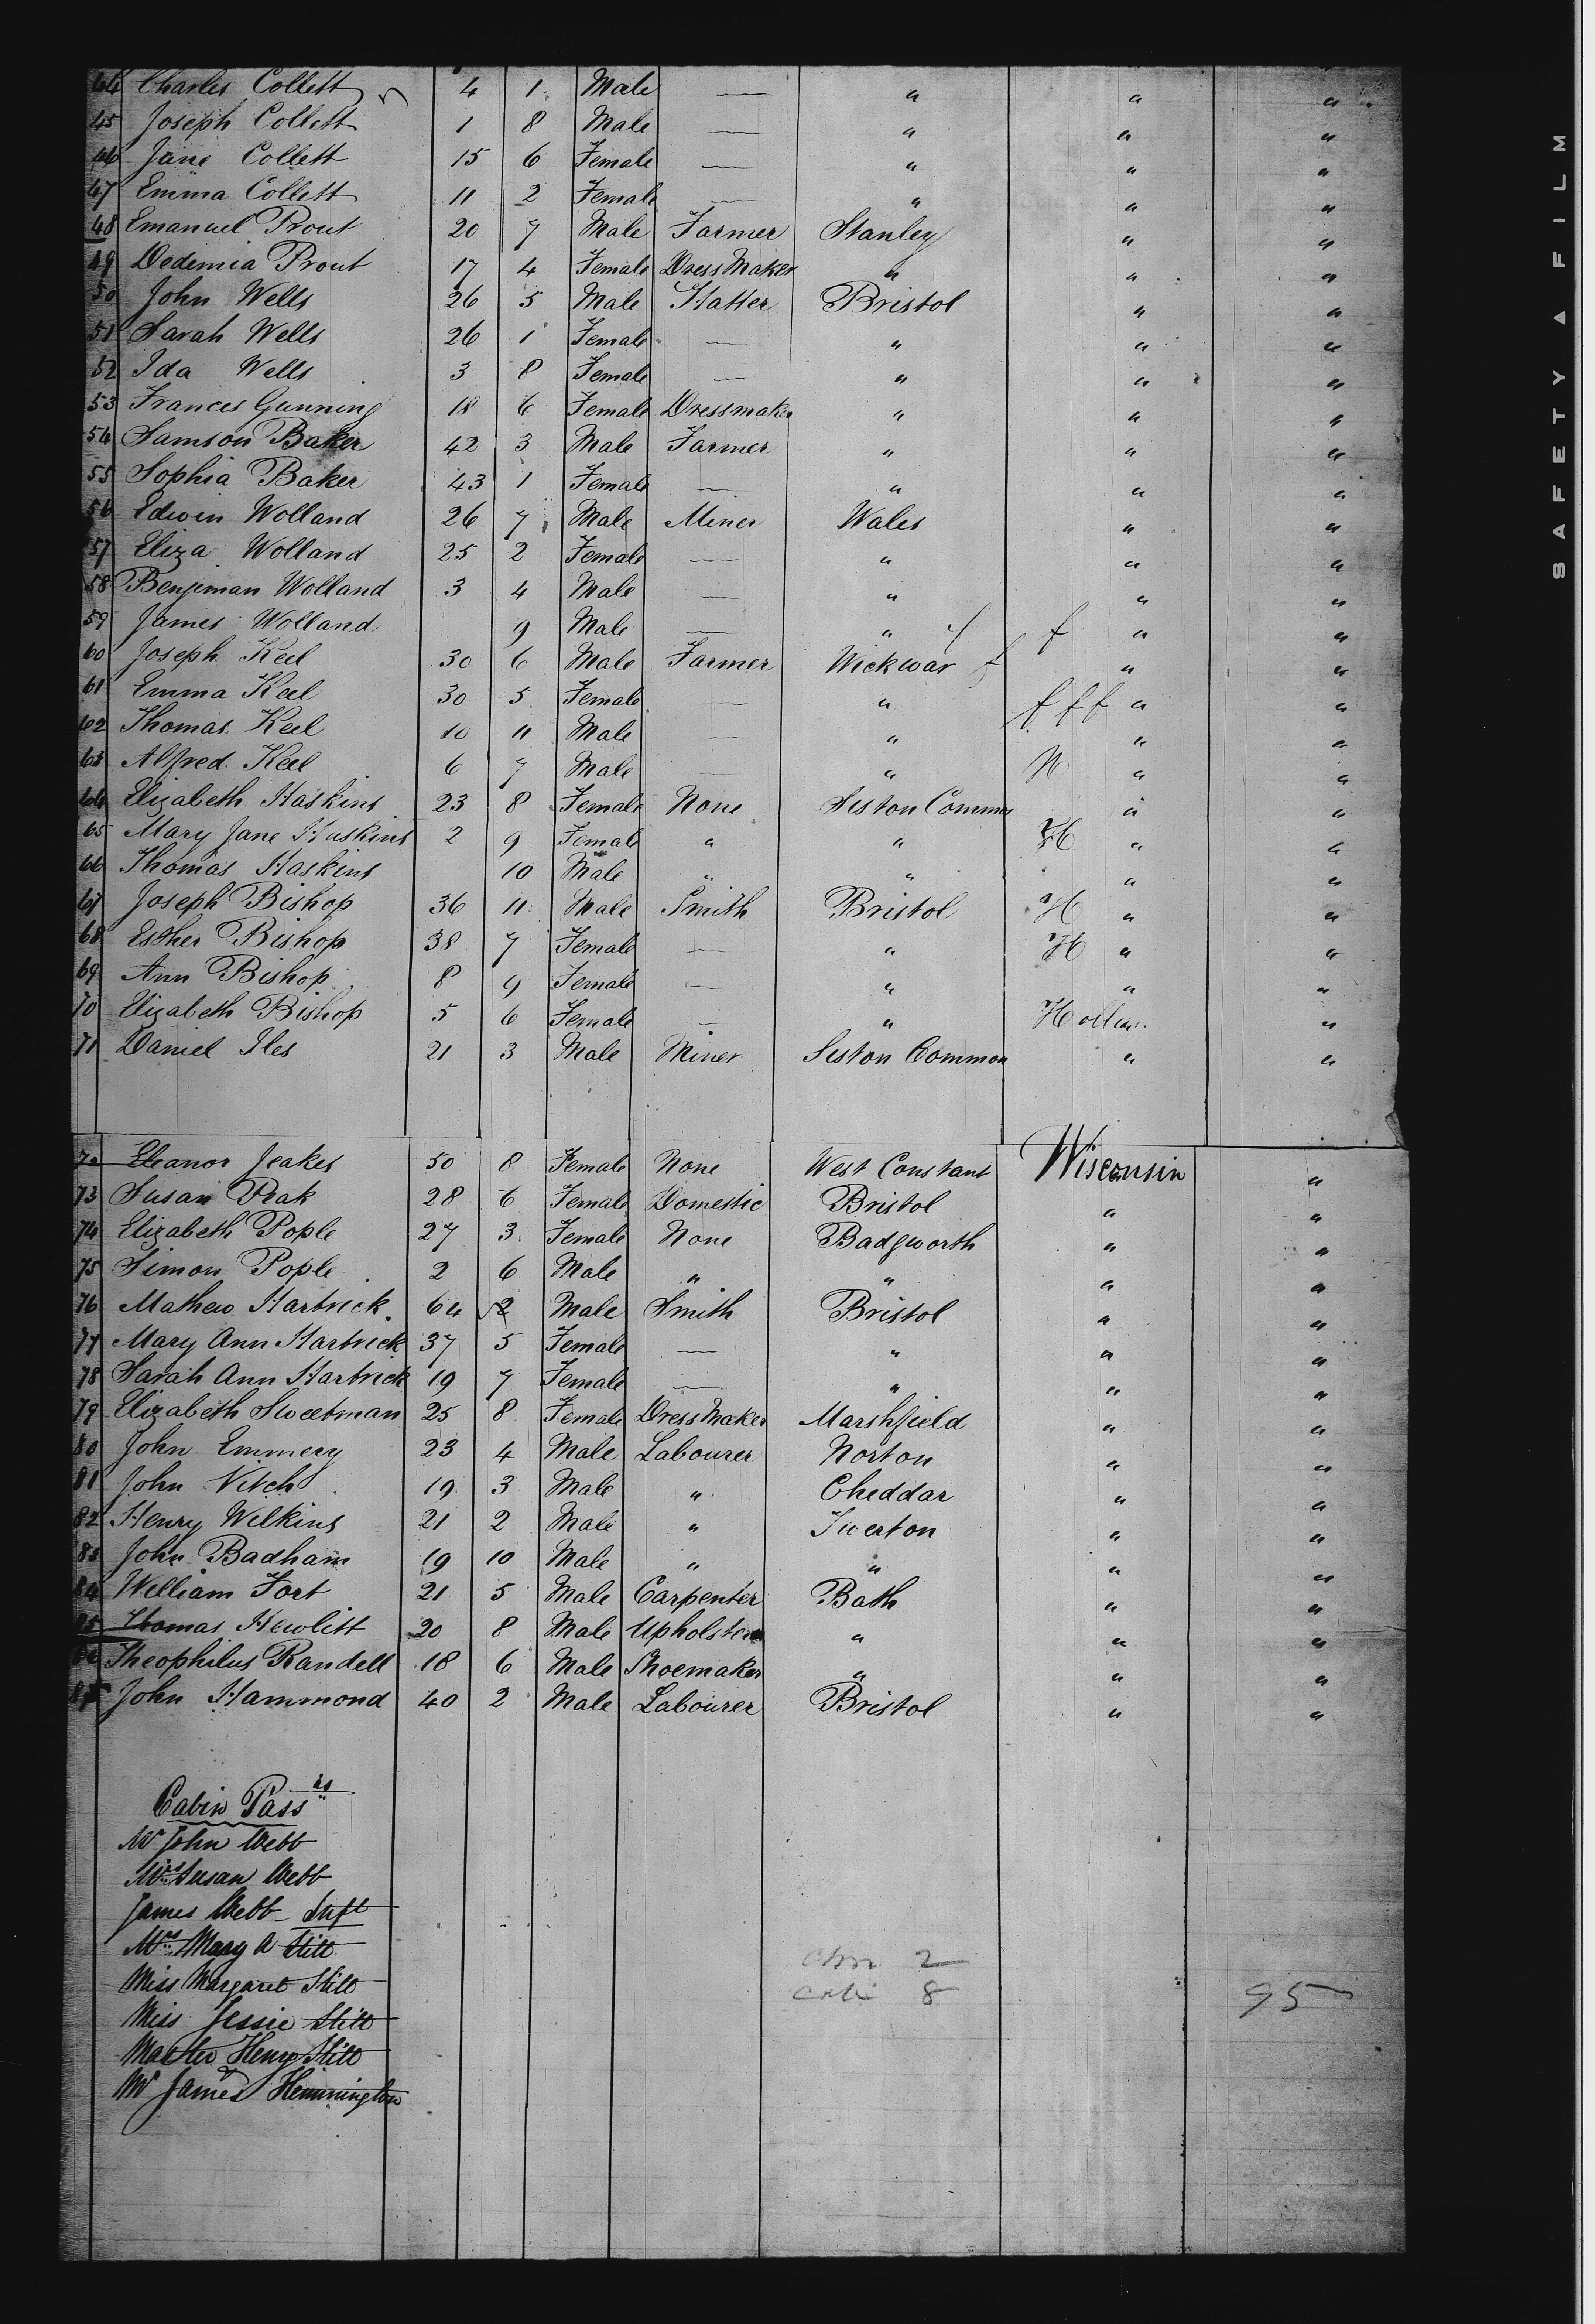 44 Charles Collett 4 1 Male — " " "
45 Joseph Collett 1 8 Male — " " "
46 Jane Collett 15 6 Female — " " "
47 Emma Collett 11 2 Female — " " "
48 Emanuel Prout 20 7 Male Farmer Stanley " "
49 Dedemia Prout 17 4 Female Dress Maker " " "
50 John Wells 26 5 Male Hatter Bristol " "
51 Sarah Wells 26 1 Female — " " "
52 Ida Wells 3 8 Female — " " "
53 Frances Gunning 18 6 Female Dressmaker " " "
54 Samson Baker 42 3 Male Farmer " " "
55 Sophia Baker 43 1 Female — " " "
56 Edwin Wolland 26 7 Male Miner Wales " "
57 Eliza Wolland 25 2 Female — " " "
58 Benjiman Wolland 3 4 Male — " " "
59 James Wolland 9 Male — " f " "
60 Joseph Keel 30 6 Male Farmer Wickwar f " "
61 Emma Keel 30 5 Female — " f f f " "
62 Thomas Keel 10 11 Male — " " "
63 Alfred Keel 6 7 Male — " H " "
64 Elizabeth Haskins 23 8 Female None Siston Common " "
65 Mary Jane Huskins 2 9 Female " " H " "
66 Thomas Haskins 10 Male " " " "
67 Joseph Bishop 36 11 Male Smith Bristol H " "
68 Esther Bishop 38 7 Female — " H " "
69 Ann Bishop 8 9 Female — " " "
70 Elizabeth Bishop 5 6 Female — " "
71 Daniel Iles 21 3 Male Miner Siston Common " "
72 Eleanor Jeakes 50 8 Female None West Constant Wisconsin "
73 Susan Peak 28 6 Female Domestic Bristol " "
74 Elizabeth Pople 27 3 Female None Badgworth " "
75 Simon Pople 2 6 Male " " " "
76 Mathew Hartrick 64 2 Male Smith Bristol " "
77 Mary Ann Hartrick 37 5 Female — " " "
78 Sarah Ann Hartrick 19 7 Female — " " "
79 Elizabeth Sweetman 25 8 Female Dress Maker Marshfield " "
80 John Emmery 23 4 Male Labourer Norton " "
81 John Vitch 19 3 Male " Cheddar " "
82 Henry Wilkins 21 2 Male " Twerton " "
83 John Badham 19 10 Male " " " "
84 William Fort 21 5 Male Carpenter Bath " "
85 Thomas Hewlitt 20 8 Male Upholsterer " " "
86 Theophilus Randell 18 6 Male Shoemaker " " "
87 John Hammond 40 2 Male Labourer Bristol " "
Cabin Passrs
Mr John Webb
Mrs Susan Webb
James Webb - Inft
Mrs Mary A Still
Miss Margaret Still
Miss Jessie Still
Master Henry Still
Mr James Hemmington
2
8
95
SAFETY A FILM